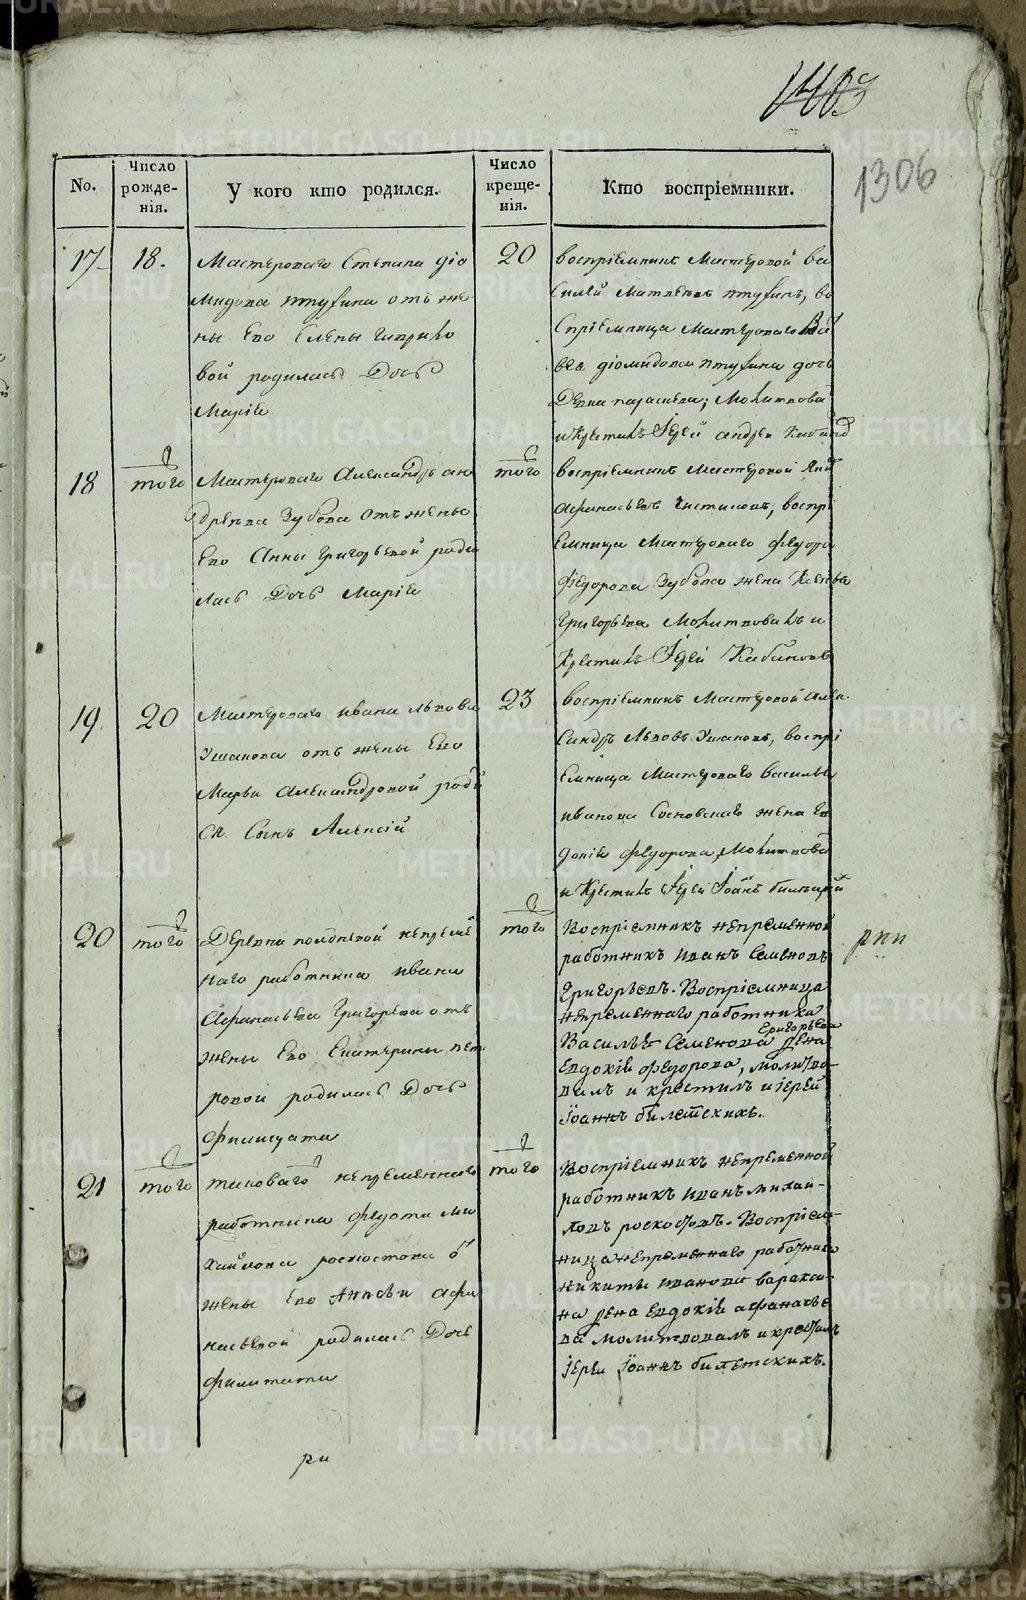 1306
No.
Число рожденія.
У кого кто родился.
Число крещенія.
Кто воспріемники.
17
18.
Мастероваго Степана діо
мидова птухина отъ же
ны Его Елены гаврило
вой родилась Дочь
Марія
20
воспріемникъ Мастеровой ва
силей Матвеевъ птухинъ, во
спріемница Мастероваго
діомидова птухина дочь
Девка параскева; Молитвова
и Крестилъ Іерей андрей
18
того
Мастероваго Александръ ан
дреева Зубова отъ жены
Его Анны григорьевой роди
лась Дочь Марія
того
воспріемникъ Мастеровой
Афанасьевъ Чистяковъ, воспрі
Емница Мастероваго Федора
Федорова Зубова жена Ксенья
григорьева Молитвовалъ и
Крестилъ Іерей
19.
20
Мастероваго ивана львова
Ушакова отъ жены Его
Марьи Александровой роди
ся Сынъ Алексій
23
воспріемникъ Мастеровой Алек
сандръ Львовъ Ушаковъ, воспрі
Емница Мастероваго василья
иванова Сосновскаго жена Ев
докія федорова, Молитвова
и Крестилъ Іерей Іоанъ
20
того
Деревни полдневой непреме
наго работника ивана
Афанасьева Григорьева отъ
жены Его Екатерины пет
ровой родилась Дочь
филицата
того
Воспріемникъ непременной
работникъ иванъ Семеновъ
Григорьевъ. Воспріемница
непременнаго работника
Василья Семенова Григорьева жена
Евдокія федорова, молитво-
валъ и крестилъ іерей
Іоаннъ билетскихъ.
21
того
таковаго непременнаго
работника федота ми
хайлова роскостова о
жены Его Анисьи афа
насьевой родилась Дочь
филитата
того
Воспріемникъ непременной
работникъ иванъ михай-
ловъ роскостовъ. Воспріем-
ница непременнаго работника
никиты иванова
жена Евдокія афанасье
ва молитвовалъ и крестилъ
іерей Іоаннъ билетскихъ.